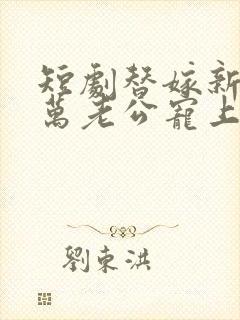 短劇替嫁新
萬老公寵上
劉東洪